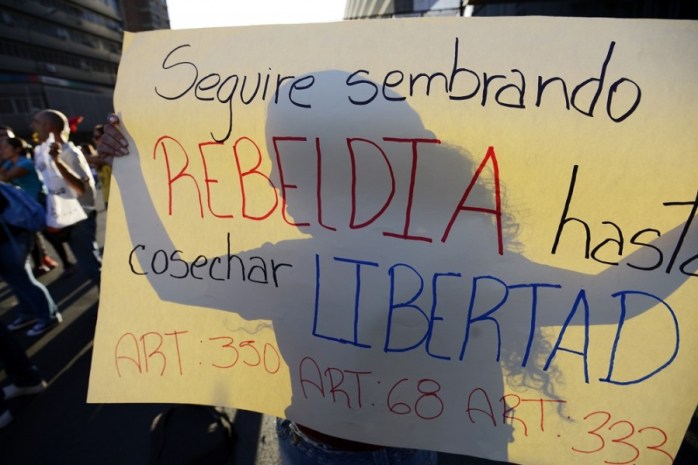 Seguire sembrando
REBELDIA hasta
cosechar LIBERTAD
ART: 350 ART: 68 ART: 333